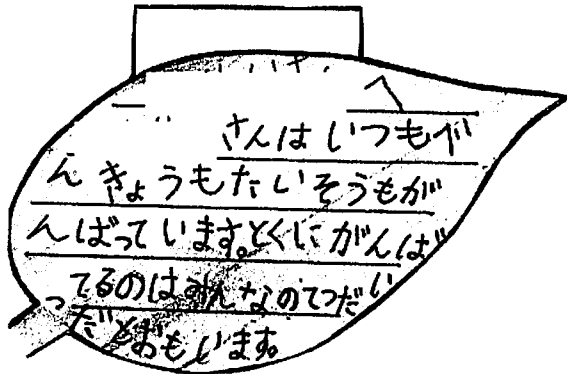 へ
さんはいつもべ
んきょうもたいそうもが
んばっています。とくにがんば
ってるのはみんなのてつだい
だとおもいます。